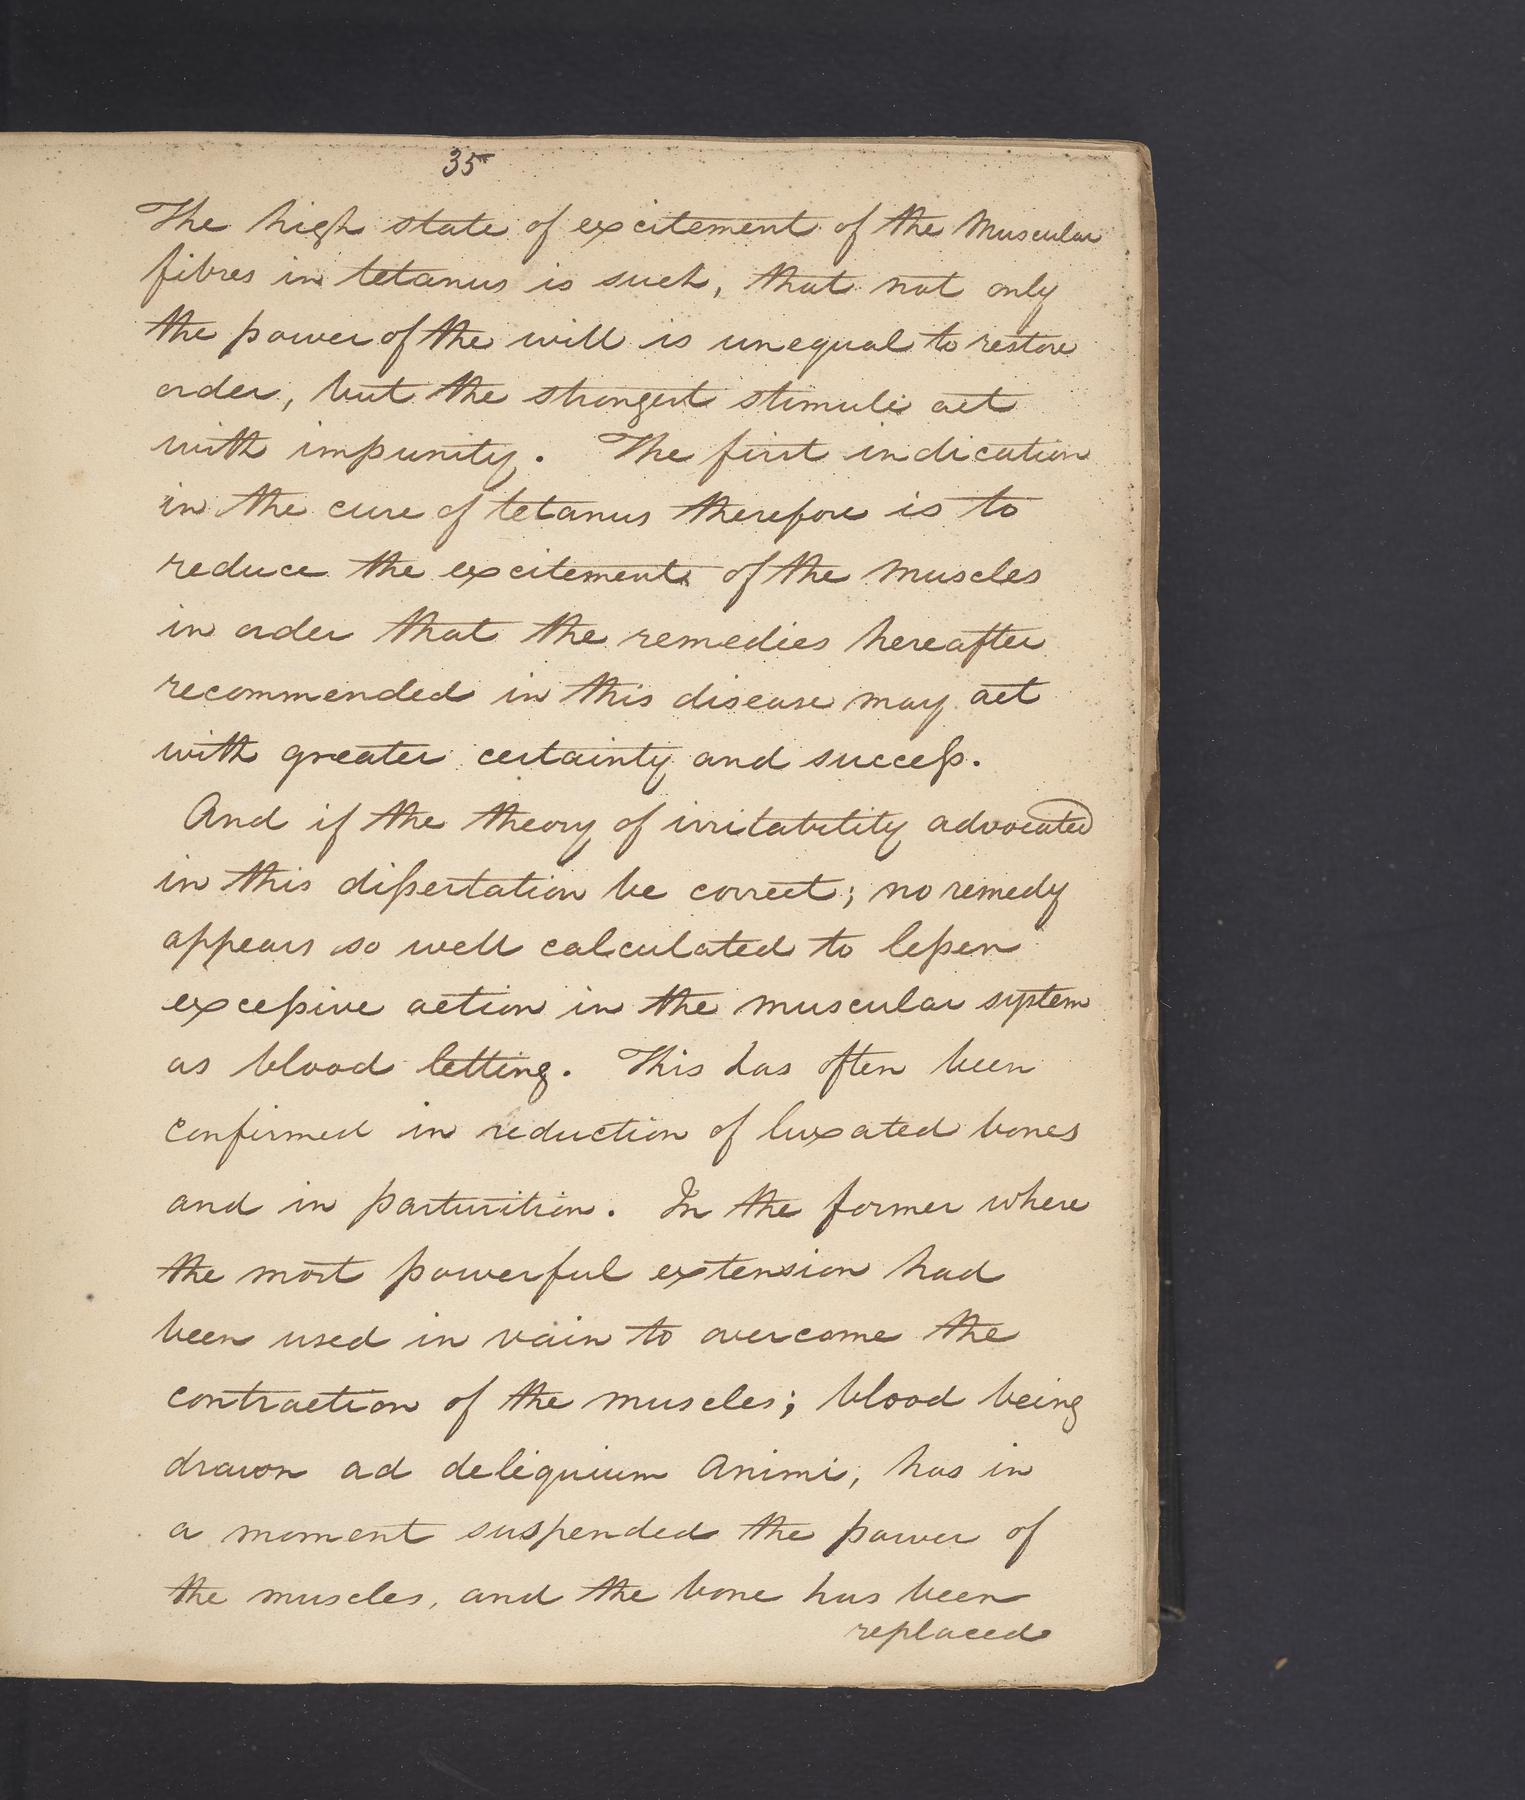 35
The high state of excitement of the Muscular
fibres in tetanus is such, that not only
the power of the will is unequal to restore
order, but the strongest stimuli act
with impunity. The first indication
in the cure of tetanus therefore is to
reduce the excitement of the Muscles
in order that the remedies hereafter
recommended in this disease may act
with greater certainty and succeſs.
And if the theory of irritability advocated
in this diſsertation be correct; no remedy
appears so well calculated to leſsen
exceſsive action in the muscular system
as blood letting. This has often been
confirmed in reduction of luxated bones
and in parturition. In the former where
the most powerful extension had
been used in vain to overcome the
contraction of the muscles; blood being
drawn ad deliquium animi, has in
a moment suspended the power of
the muscles, and the bone has been
replaced